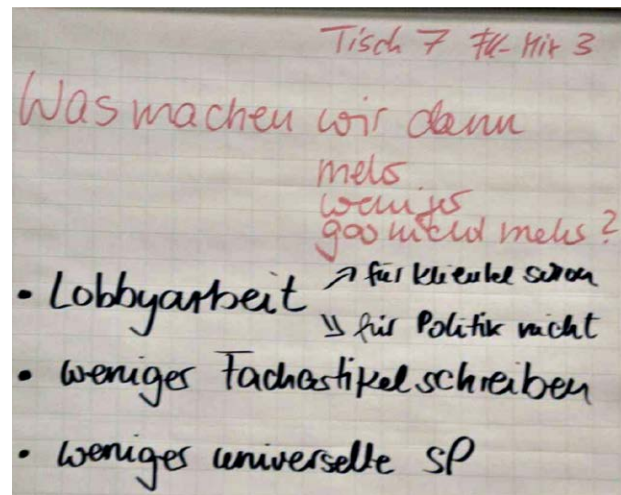 Tisch 7 FK-Mix 3
Was machen wir dann
mehr
weniger
gar nicht mehr?
• Lobbyarbeit ↗ für Klientel schon
↘ für Politik nicht
• weniger Fachartikel schreiben
• weniger universelle SP